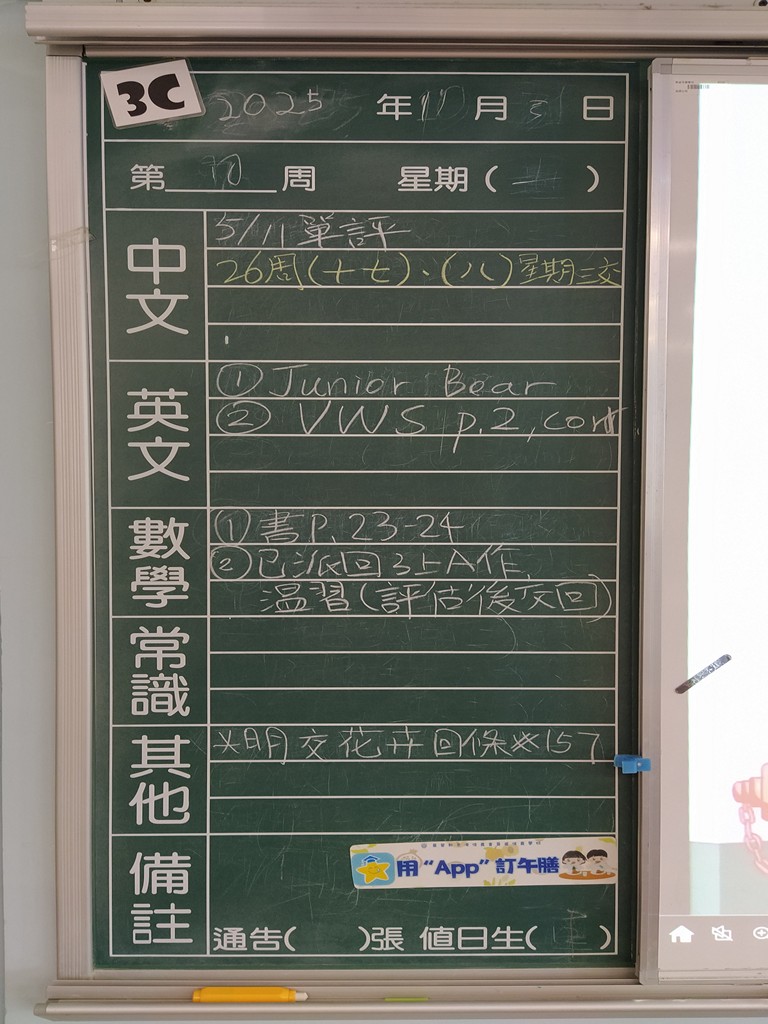 3C
2025 年 11 月 3 日
第 10 周 星期( 一 )
中文
5/11 單評
26周(十七)、(八)星期三交
英文
① Junior Bear
② VWS p.2, corr
數學
① 書P. 23-24
② 已派回3上A作,
溫習(評估後交回)
常識
其他
*明交花卉回條*157
備註
用“App”訂午膳
通告( )張 值日生( )